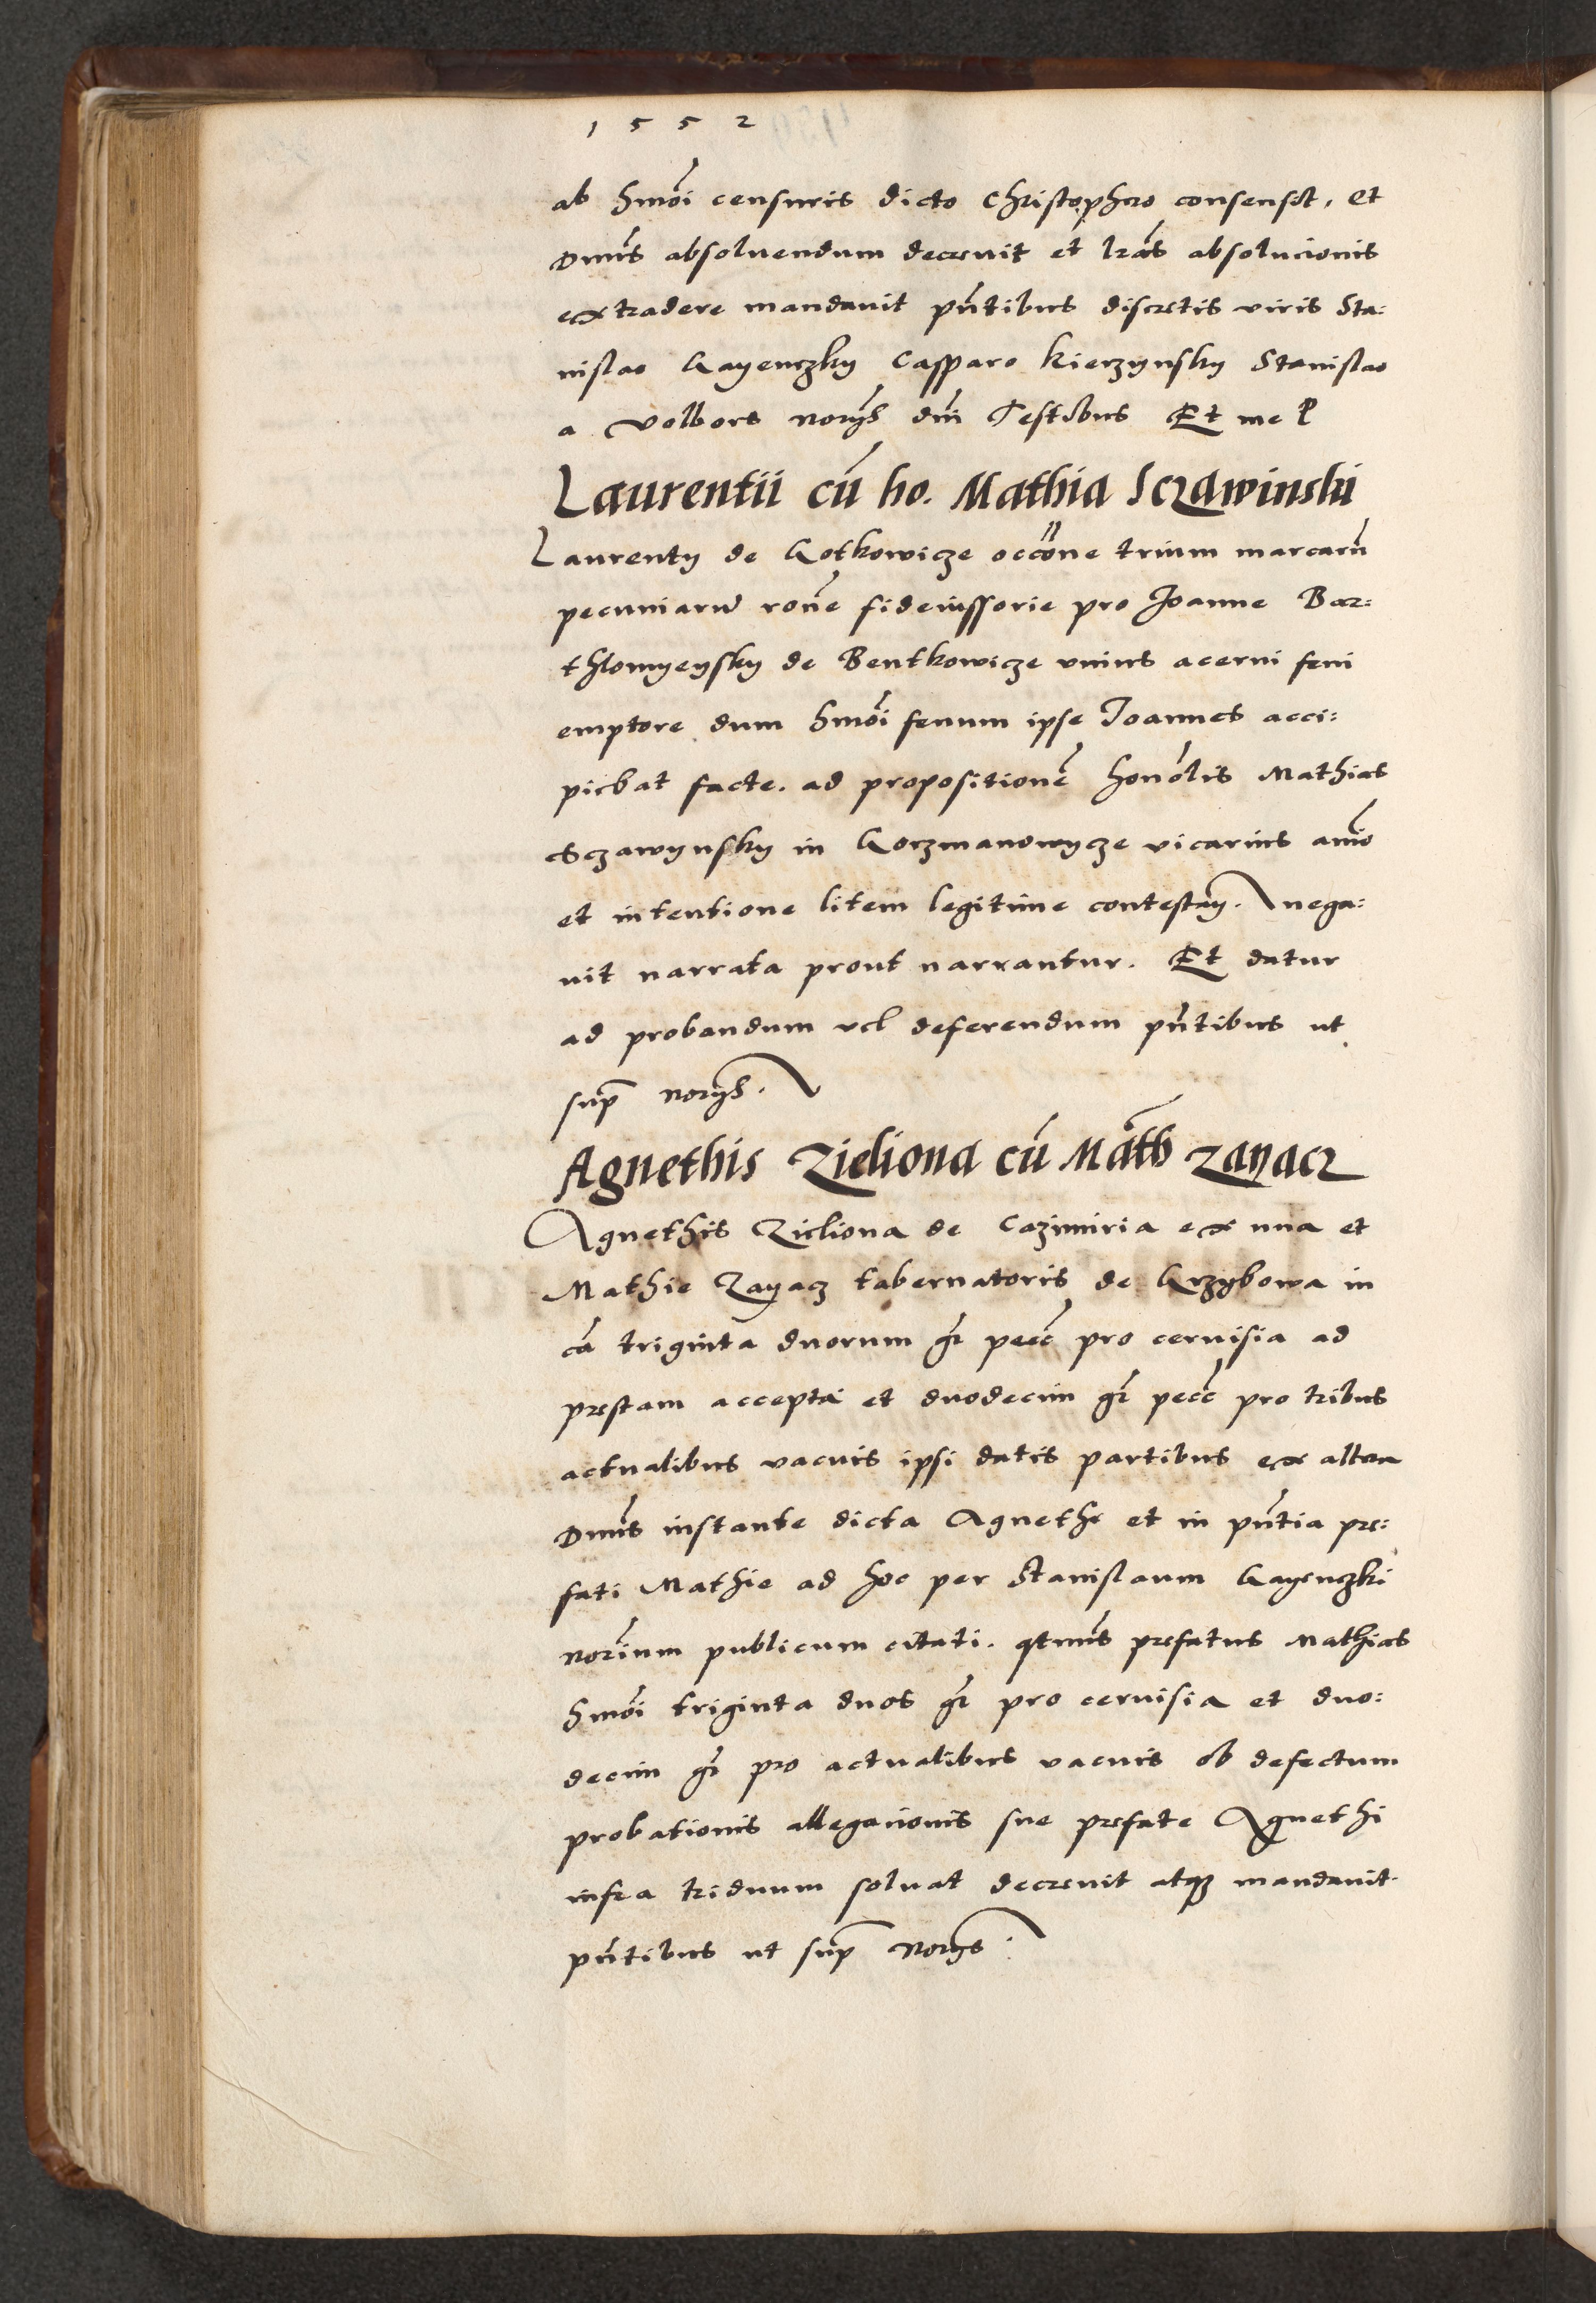 1552
ab hmōi censuris dicto Christophoro consensit, Et
Dnūs absoluendum decreuit et lrās absolucionis
extradere mandauit pn̄tibus discretis viris Sta:
nislao Gayenczky Casparo Kierzynsky Stanislao
a Volbors norijs dnī Testibus Et me P
Laurentii cū ho. Mathia Sczawinski
Laurenty de Gotkowicze occōne trium marcarū
pecuniarū ronē fideiussorie pro Joanne Bar:
thlomyeysky de Bentkowicze vnius acerui feni
emptore dum hmōi fenum ipse Joannes acci:
piebat facte. ad propositionē honōlis Mathias
Sczawynsky in Goczmanowycze vicarius anīo
et intentione litem legitime contestan. nega:
uit narrata prout narrantur. Et datur
ad probandum vel deferendum pn̄tibus ut
sup norijs.
Agnethis Zieliona cū Māth Zayacz
Agnethis Zieliona de Cazimiria ex una et
Mathie Zayacz tabernatoris de Grzybowa in
cā triginta duorum gr̄ pecc̄ pro ceruisia ad
prestam acceptā et duodecim gr̄ pecc̄ pro tribus
actualibus vacuis ipsi datis partibus ex altera
Dnūs instante dicta Agnethe et in pn̄tia pre:
fati Mathie ad hoc per Stanislaum Gayenczki
norīum publicum citati. qtnūs prefatus Mathias
hmōi triginta duos gr̄ pro ceruisia et duo:
decim gr̄ pro actualibus vacuis ob defectum
probationis allegacionis sue prefate Agnethi
infra triduum soluat decreuit atqz mandauit.
pn̄tibus ut sup norijs.